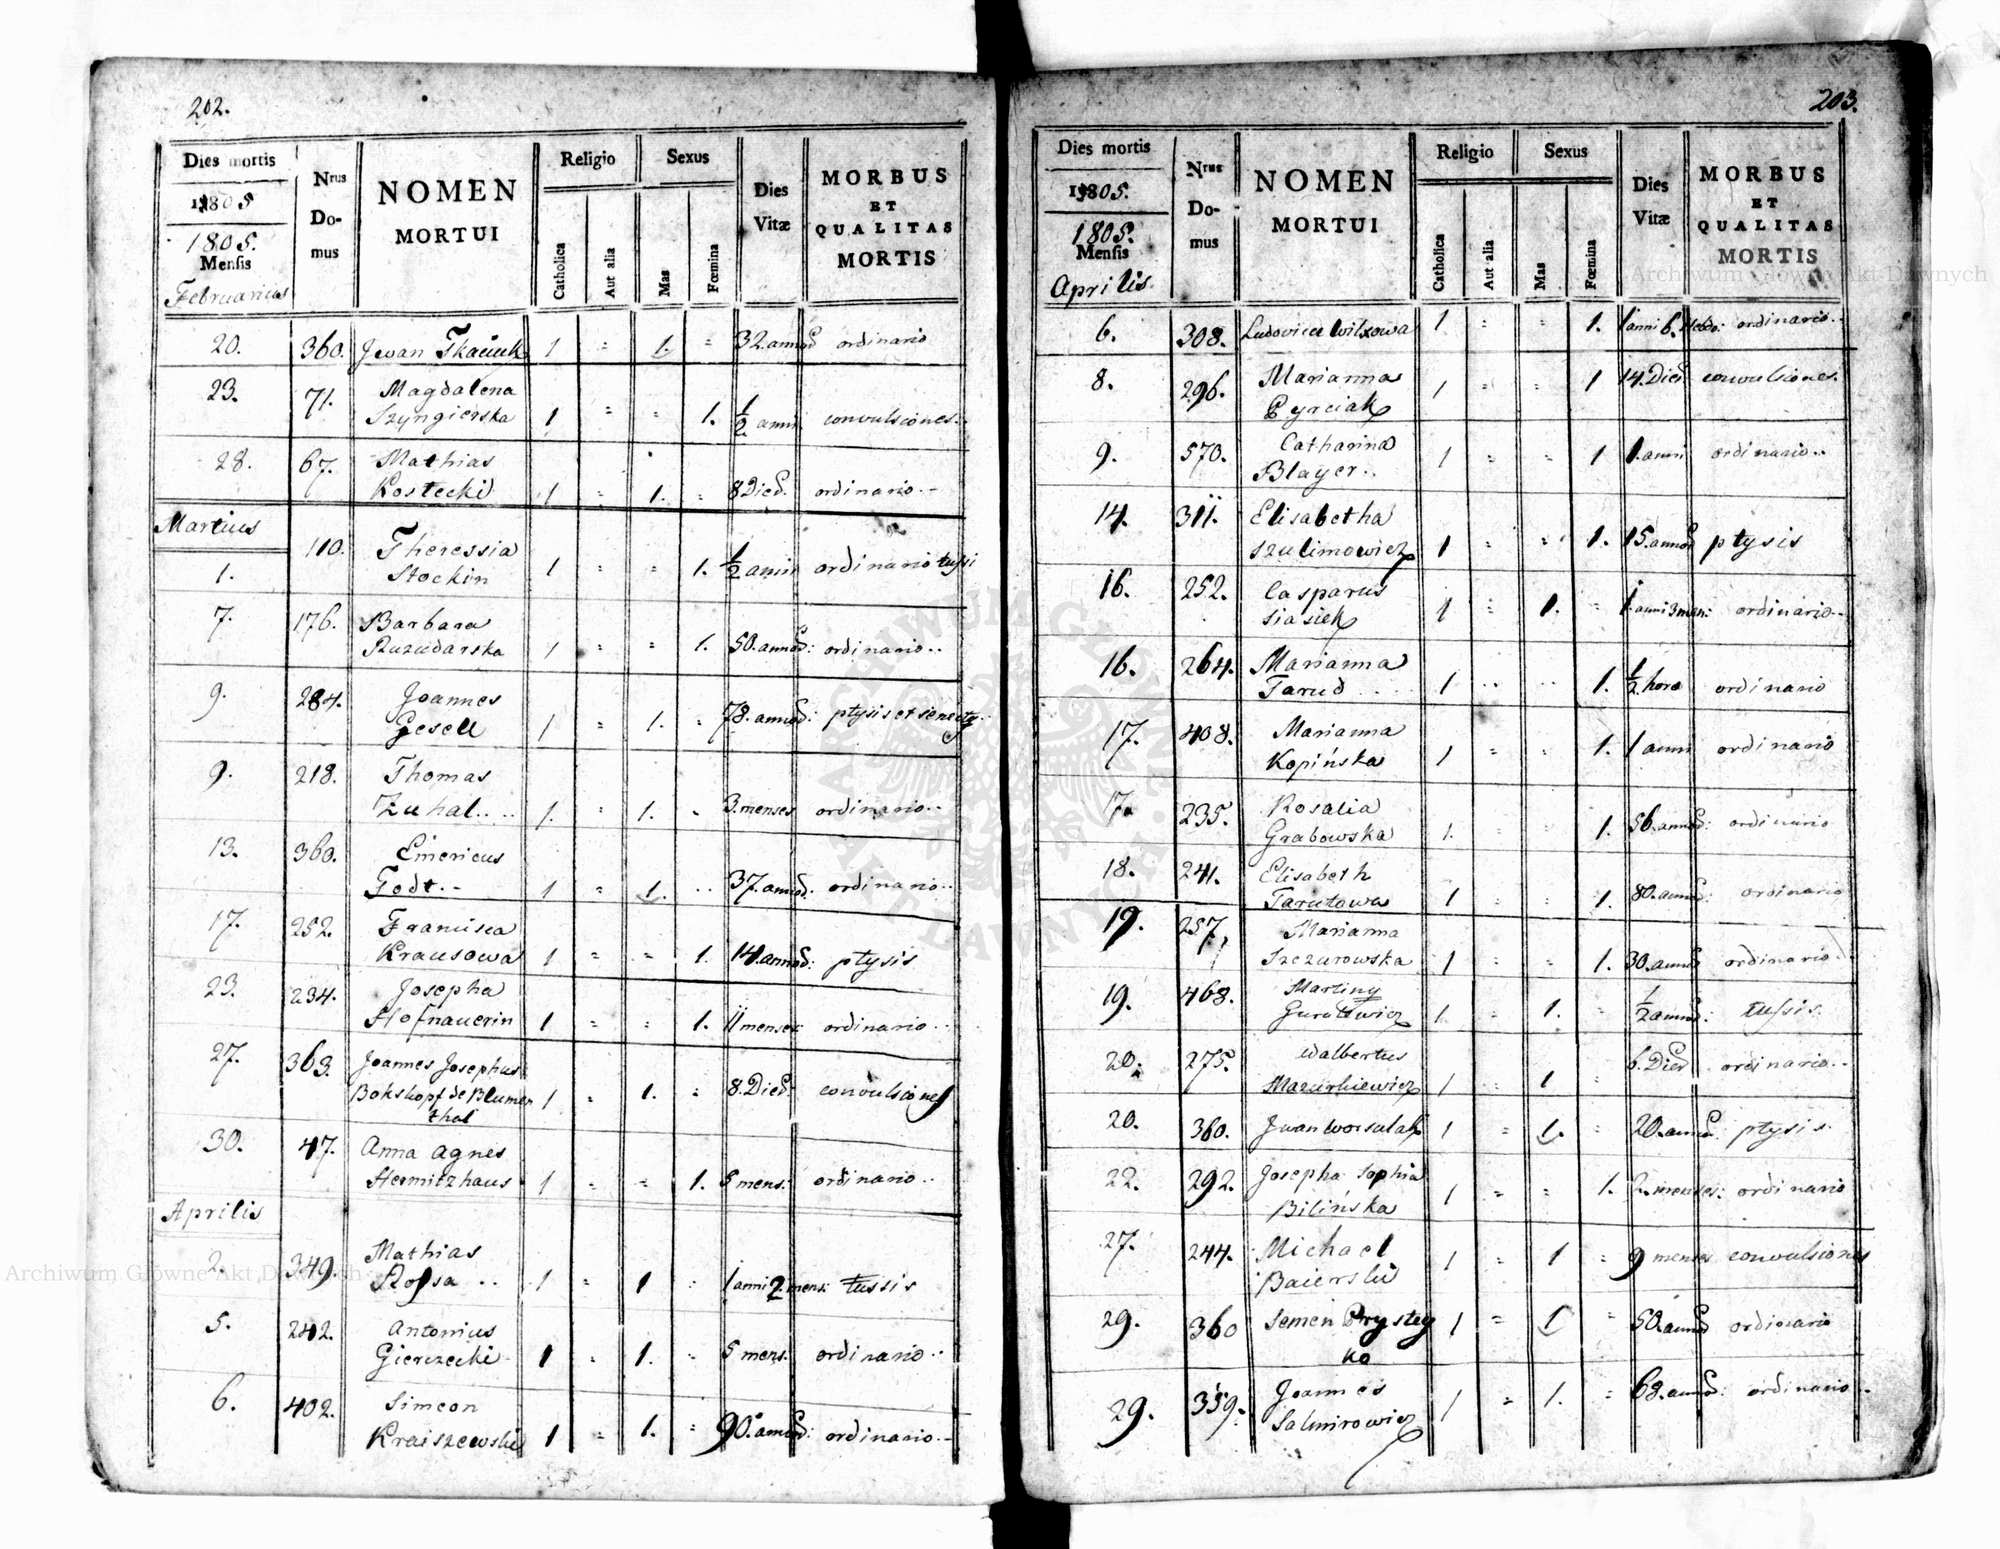 202.
Dies mortis
1805
1805.
Mensis
Februarius
Nrus
Do-
mus
NOMEN
MORTUI
Religio
Catholica
Aut alia
Sexus
Mas
Fœmina
Dies
Vitæ
MORBUS
ET
QUALITAS
MORTIS
20. 360. Jwan Tkaczuk 1 " 1. " 32. annod ordinario
23. 71. Magdalena
Szyngierska 1 " " 1. 1/2 anni convulsiones.
28. 67. Mathias
Kostecki 1 " 1. " 8 Died. ordinario
Martius
1. 110. Theressia
Stockin 1 " " 1. 1/2 anni ordinario tussi
7. 176. Barbara
Ruzudarska 1 " " 1. 50. annod: ordinario
9. 284. Joannes
Gesell 1 " 1. " 78. annod: ptysis et senecty
9. 218. Thomas
Zuhal 1. " 1. " 3. menses ordinario
13. 360. Emericus
Todt 1 " 1. " 37. annod: ordinario
17. 252. Francisca
Krausowa 1 " " 1. 14. annod: ptysis
23. 234. Josepha
Hofnauerin 1 " " 1. 11 menses ordinario
27. 363. Joannes Josephus
Bokskopf de Blumen
thal 1 " 1. " 8. Died: convulsiones
30. 47. Anna Agnes
Hermitzhaus 1 " " 1. 5 mens: ordinario
Aprilis
2. 349. Mathias
Rossa 1 " 1 " 1 anni 2. mens: tussis
5. 242. Antonius
Gierzecki 1 " 1. " 5 mens. ordinario
6. 402. Simeon
Kraiszewski 1 " 1. " 90. annod: ordinario
203.
Dies mortis
1805.
1805.
Mensis
Aprilis
Nrus
Do-
mus
NOMEN
MORTUI
Religio
Catholica
Aut alia
Sexus
Mas
Fœmina
Dies
Vitæ
MORBUS
ET
QUALITAS
MORTIS
6. 308. Ludovica Wilxowa 1 " " 1. 1 anni 6. Hebdo: ordinario
8. 296. Marianna
Pyrciak 1 " " 1 14. Died convulsiones.
9. 570. Catharina
Blayer 1 " " 1 1. anni ordinario
14. 311. Elisabetha
Szulimowicz 1 " " 1. 15. annod ptysis
16. 252. Casparus
Siasiek 1 " 1. " 1. anni 3 men: ordinario
16. 264. Marianna
Tarud 1 " " 1. 1/2 hora ordinario
17. 408. Marianna
Kopińska 1 " " 1. 1 anni ordinario
17. 235. Rosalia
Grabowska 1. " " 1. 56. annod: ordinario
18. 241. Elisabeth
Tarutowa 1 " " 1. 80. annod: ordinario
19. 257. Marianna
Szczurowska 1 " " 1. 30. annod ordinario
19. 468. Martiny
1. " 1. " 1/2 annod: tussis.
20. 275. Walbertus
Mazurkiewicz 1 " 1 " 6. Died ordinario
20. 360. Jwan Worsulak 1 " 1. " 20. annod: ptysis.
22. 292. Josepha Sophia
Bilińska 1 " " 1. 2. menses: ordinario
27. 244. Michael
Baierski 1 " 1 " 9 menses convulsiones
29. 360 Semen Prystey
ko 1 " 1 " 50. annod ordinario
29. 359. Joannes
Salmirowicz 1 " 1. " 68. annod: ordinario
Archiwum Główne Akt Dawnych
Archiwum Główne Akt Dawnych
ARCHIWUM GŁÓWNE AKT DAWNYCH